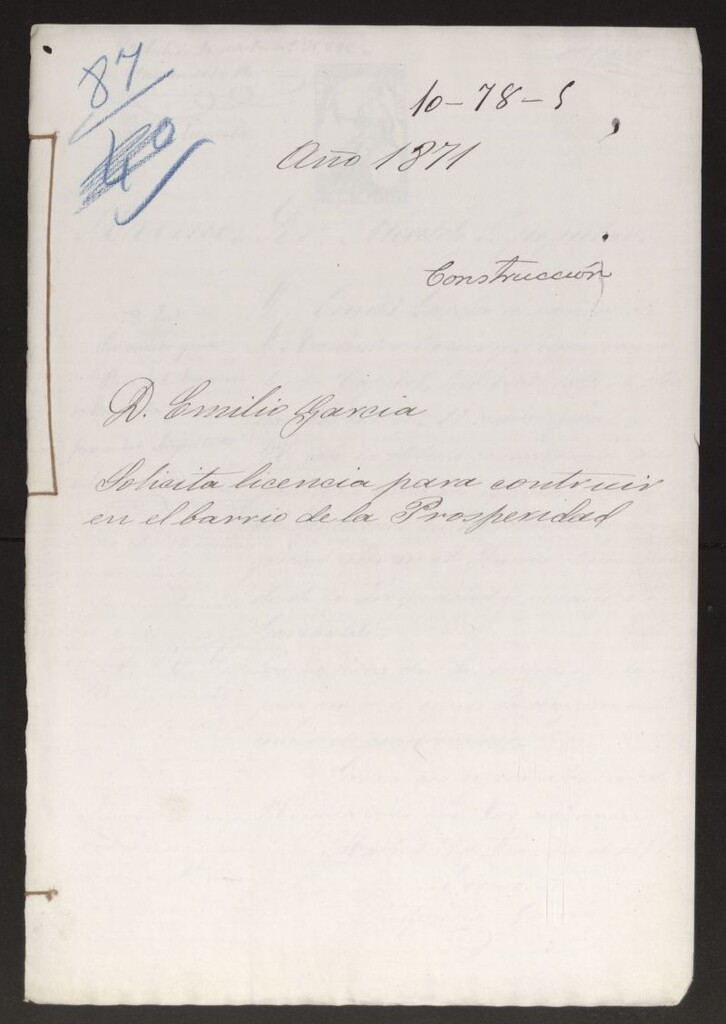 87
40
10-78-5
Año 1871
Construcción
D. Emilio Garcia
Solicita licencia para contruir
en el barrio de la Prosperidad